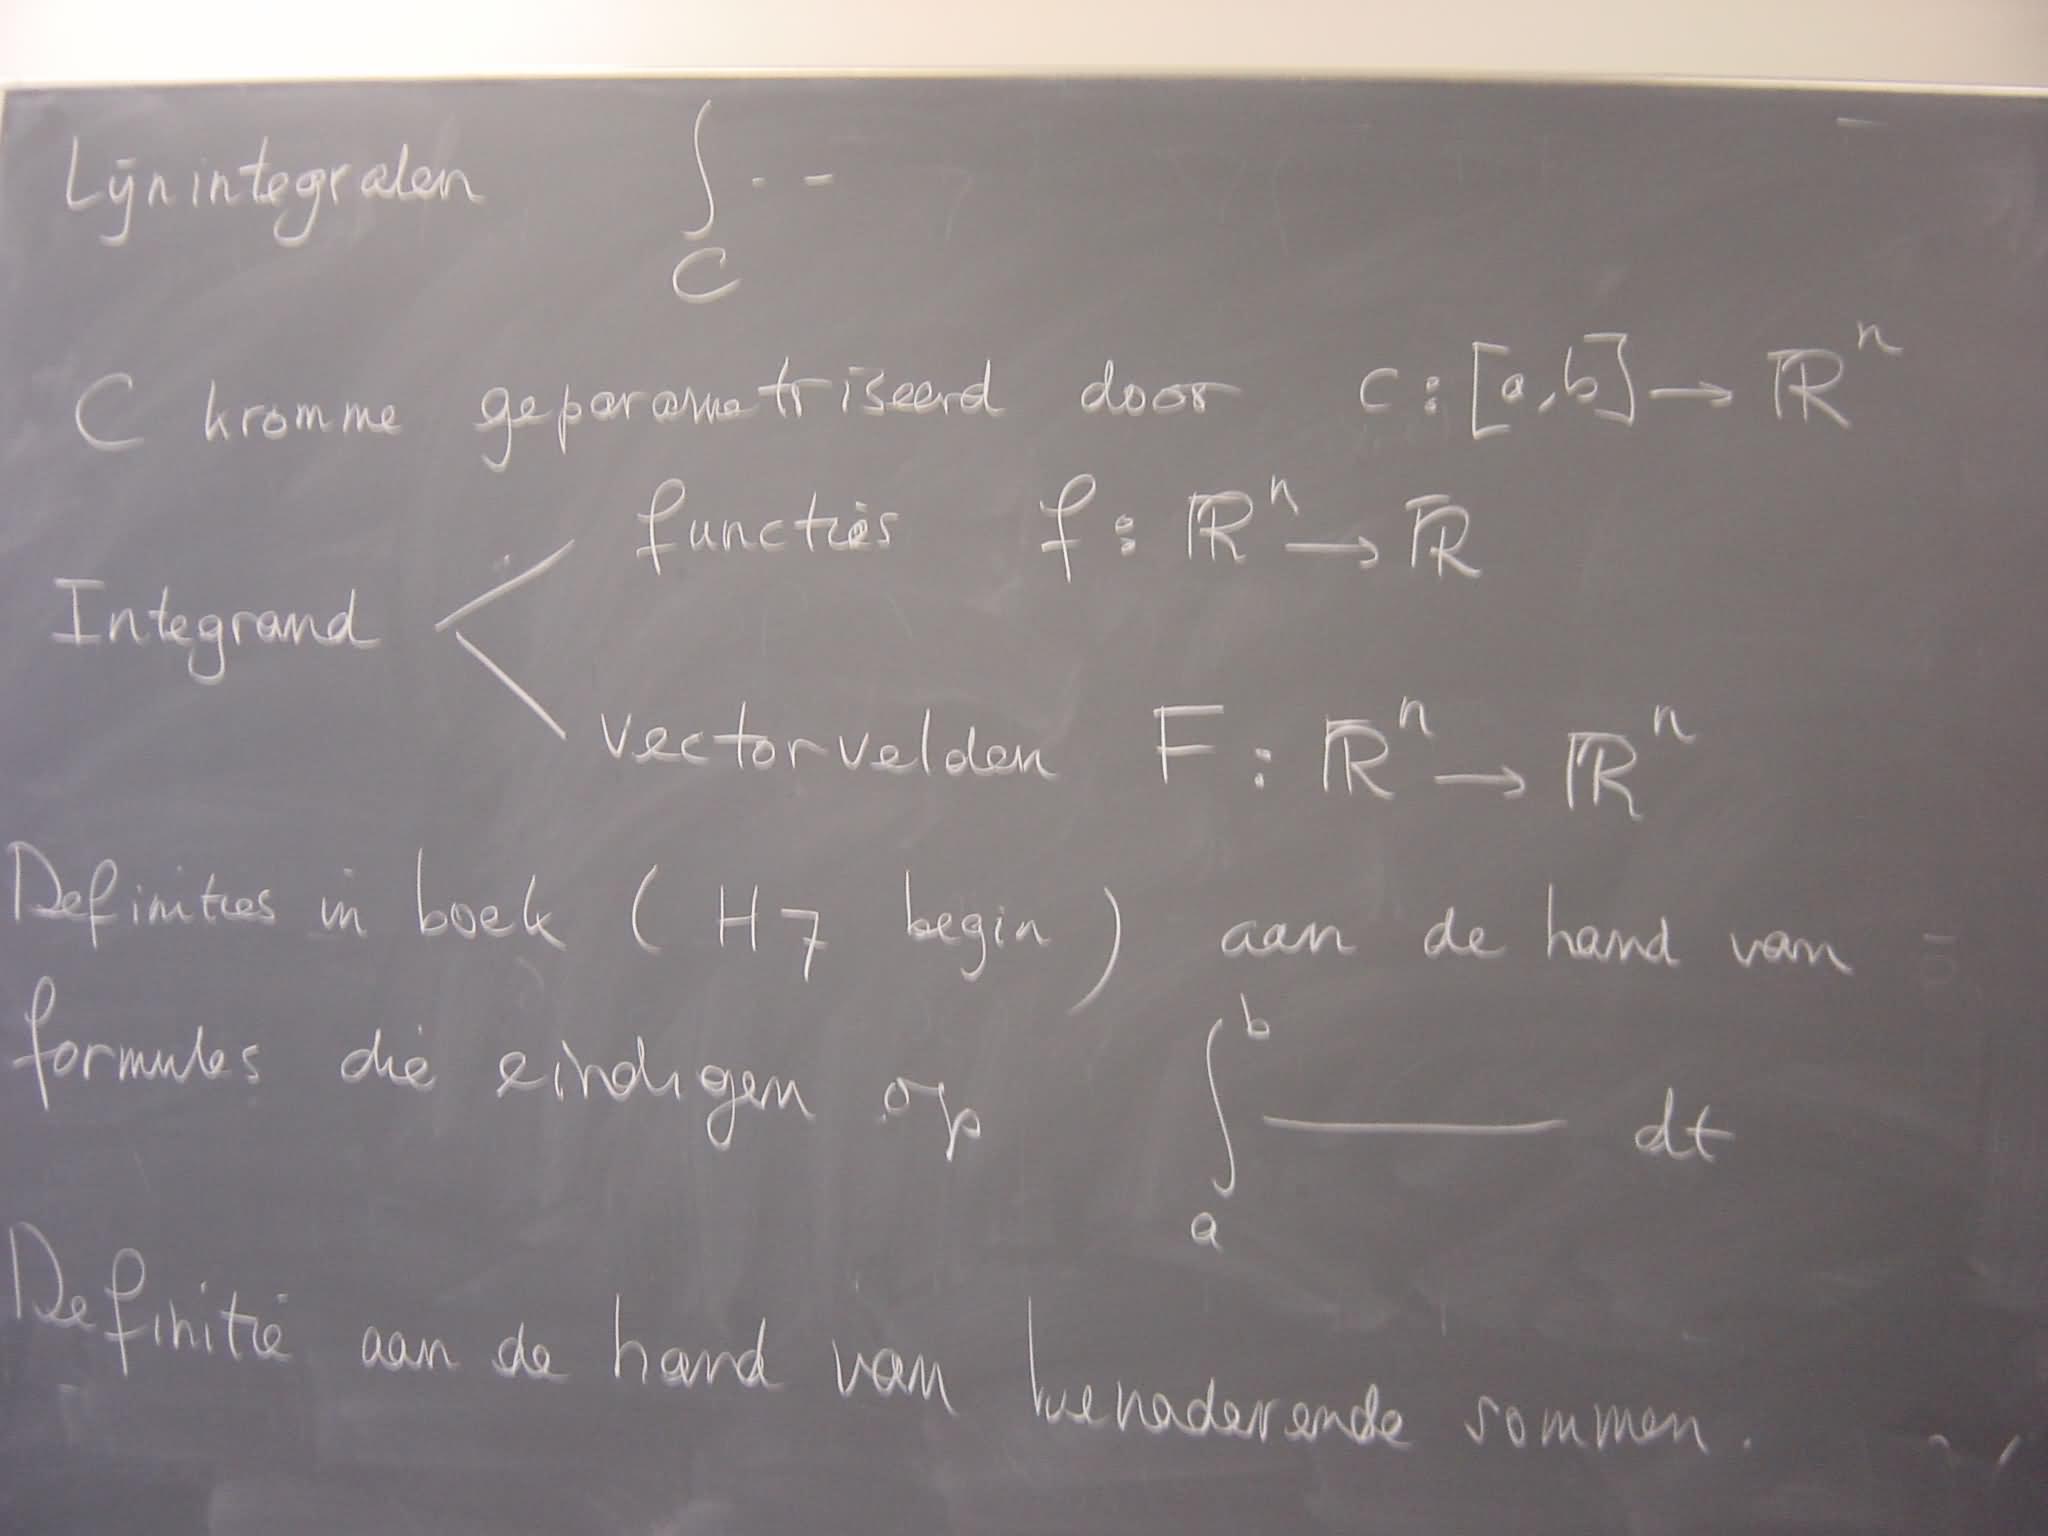 Lijnintegralen ∫_C ·· -
C kromme geparametriseerd door c : [a,b] → ℝ^n
functies f : ℝ^n → ℝ
Integrand
vectorvelden F : ℝ^n → ℝ^n
Definities in boek ( H7 begin ) aan de hand van
formules die eindigen op ∫_a^b ——— dt
Definitie aan de hand van benaderende sommen.